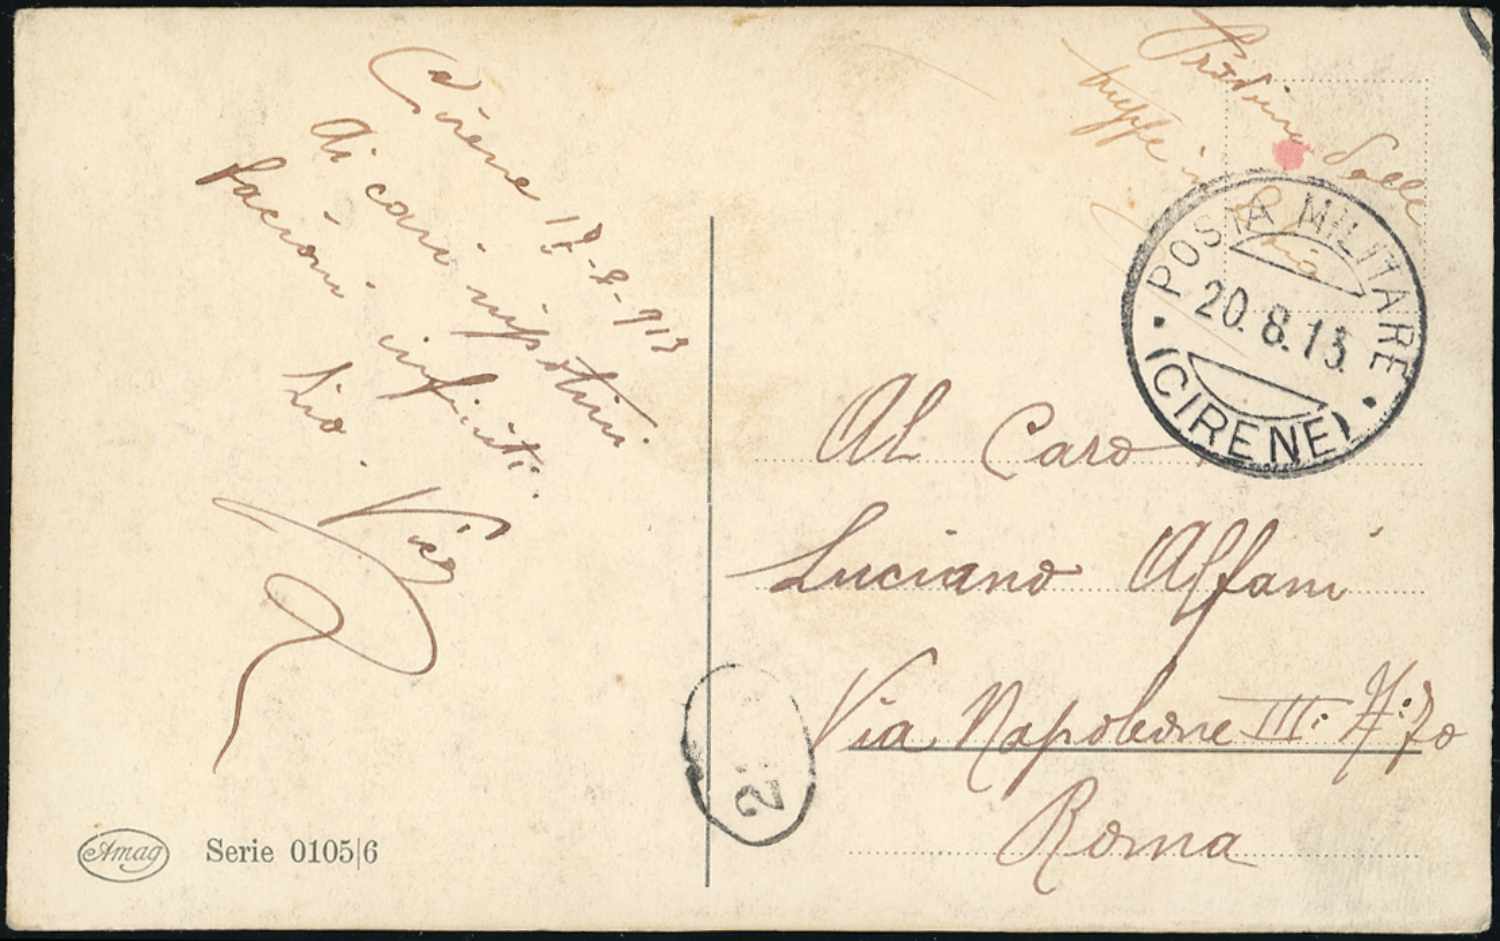 Cirene 18-8-913
Ai cari nipotini
bacioni infiniti.
Zio.
Proviene dalle
truppe in
POSTA MILITARE
20.8.13.
(CIRENE)
Al Caro
Luciano Alfani
Via Napoleone III: N:70
Roma
2
Amag
Serie 0105|6